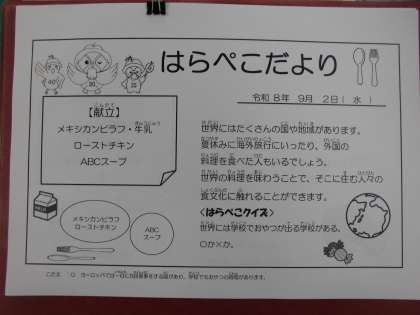 はらぺこだより
令和８年　９月　２日（　水　）
【献立】
メキシカンピラフ・牛乳
ローストチキン
ABCスープ
世界にはたくさんの国や地域があります。
夏休みに海外旅行にいったり、外国の
料理を食べた人もいるでしょう。
世界の料理を味わうことで、そこに住む人々の
食文化に触れることができます。
＜はらぺこクイズ＞
世界には学校でおやつが出る学校がある。
○か×か。
メキシカンピラフ
ローストチキン
ABC
スープ